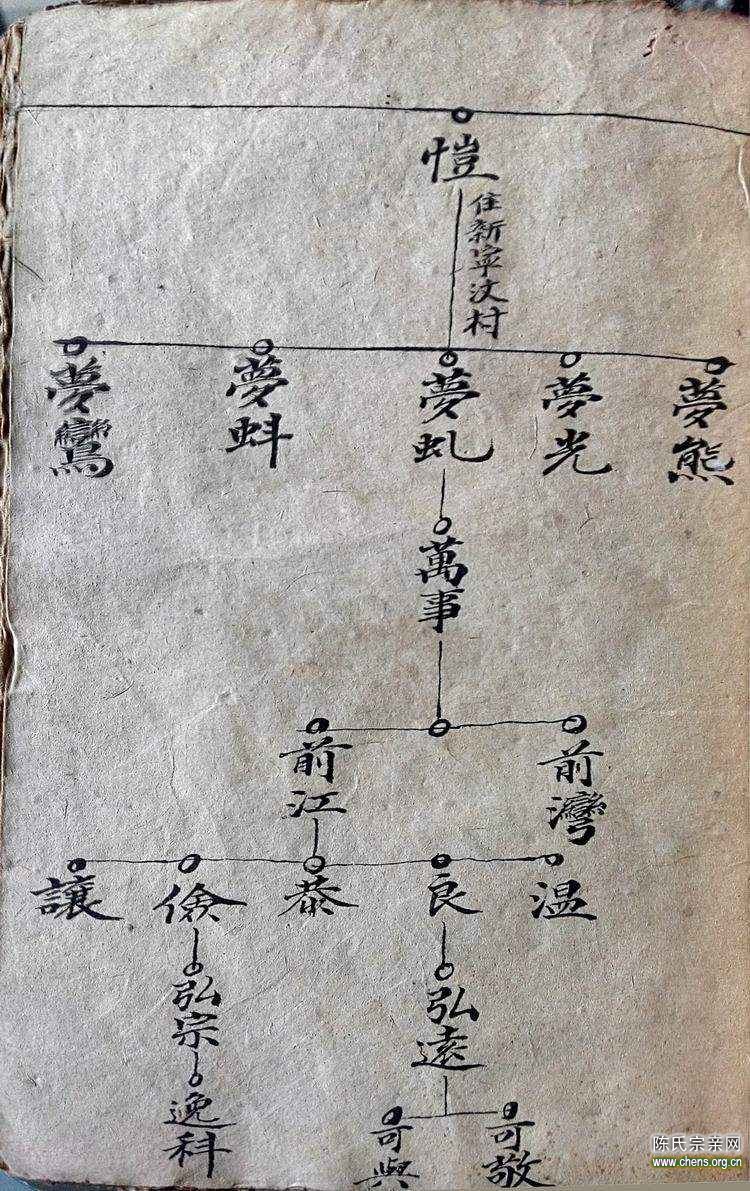 愷
住新寧汶村
夢熊
夢光
夢虬
夢蚪
夢鸞
萬事
前灣
前江
温
良
恭
儉
讓
弘遠
弘宗
可敬
可與
逸科
陈氏宗亲网
www.chens.org.cn